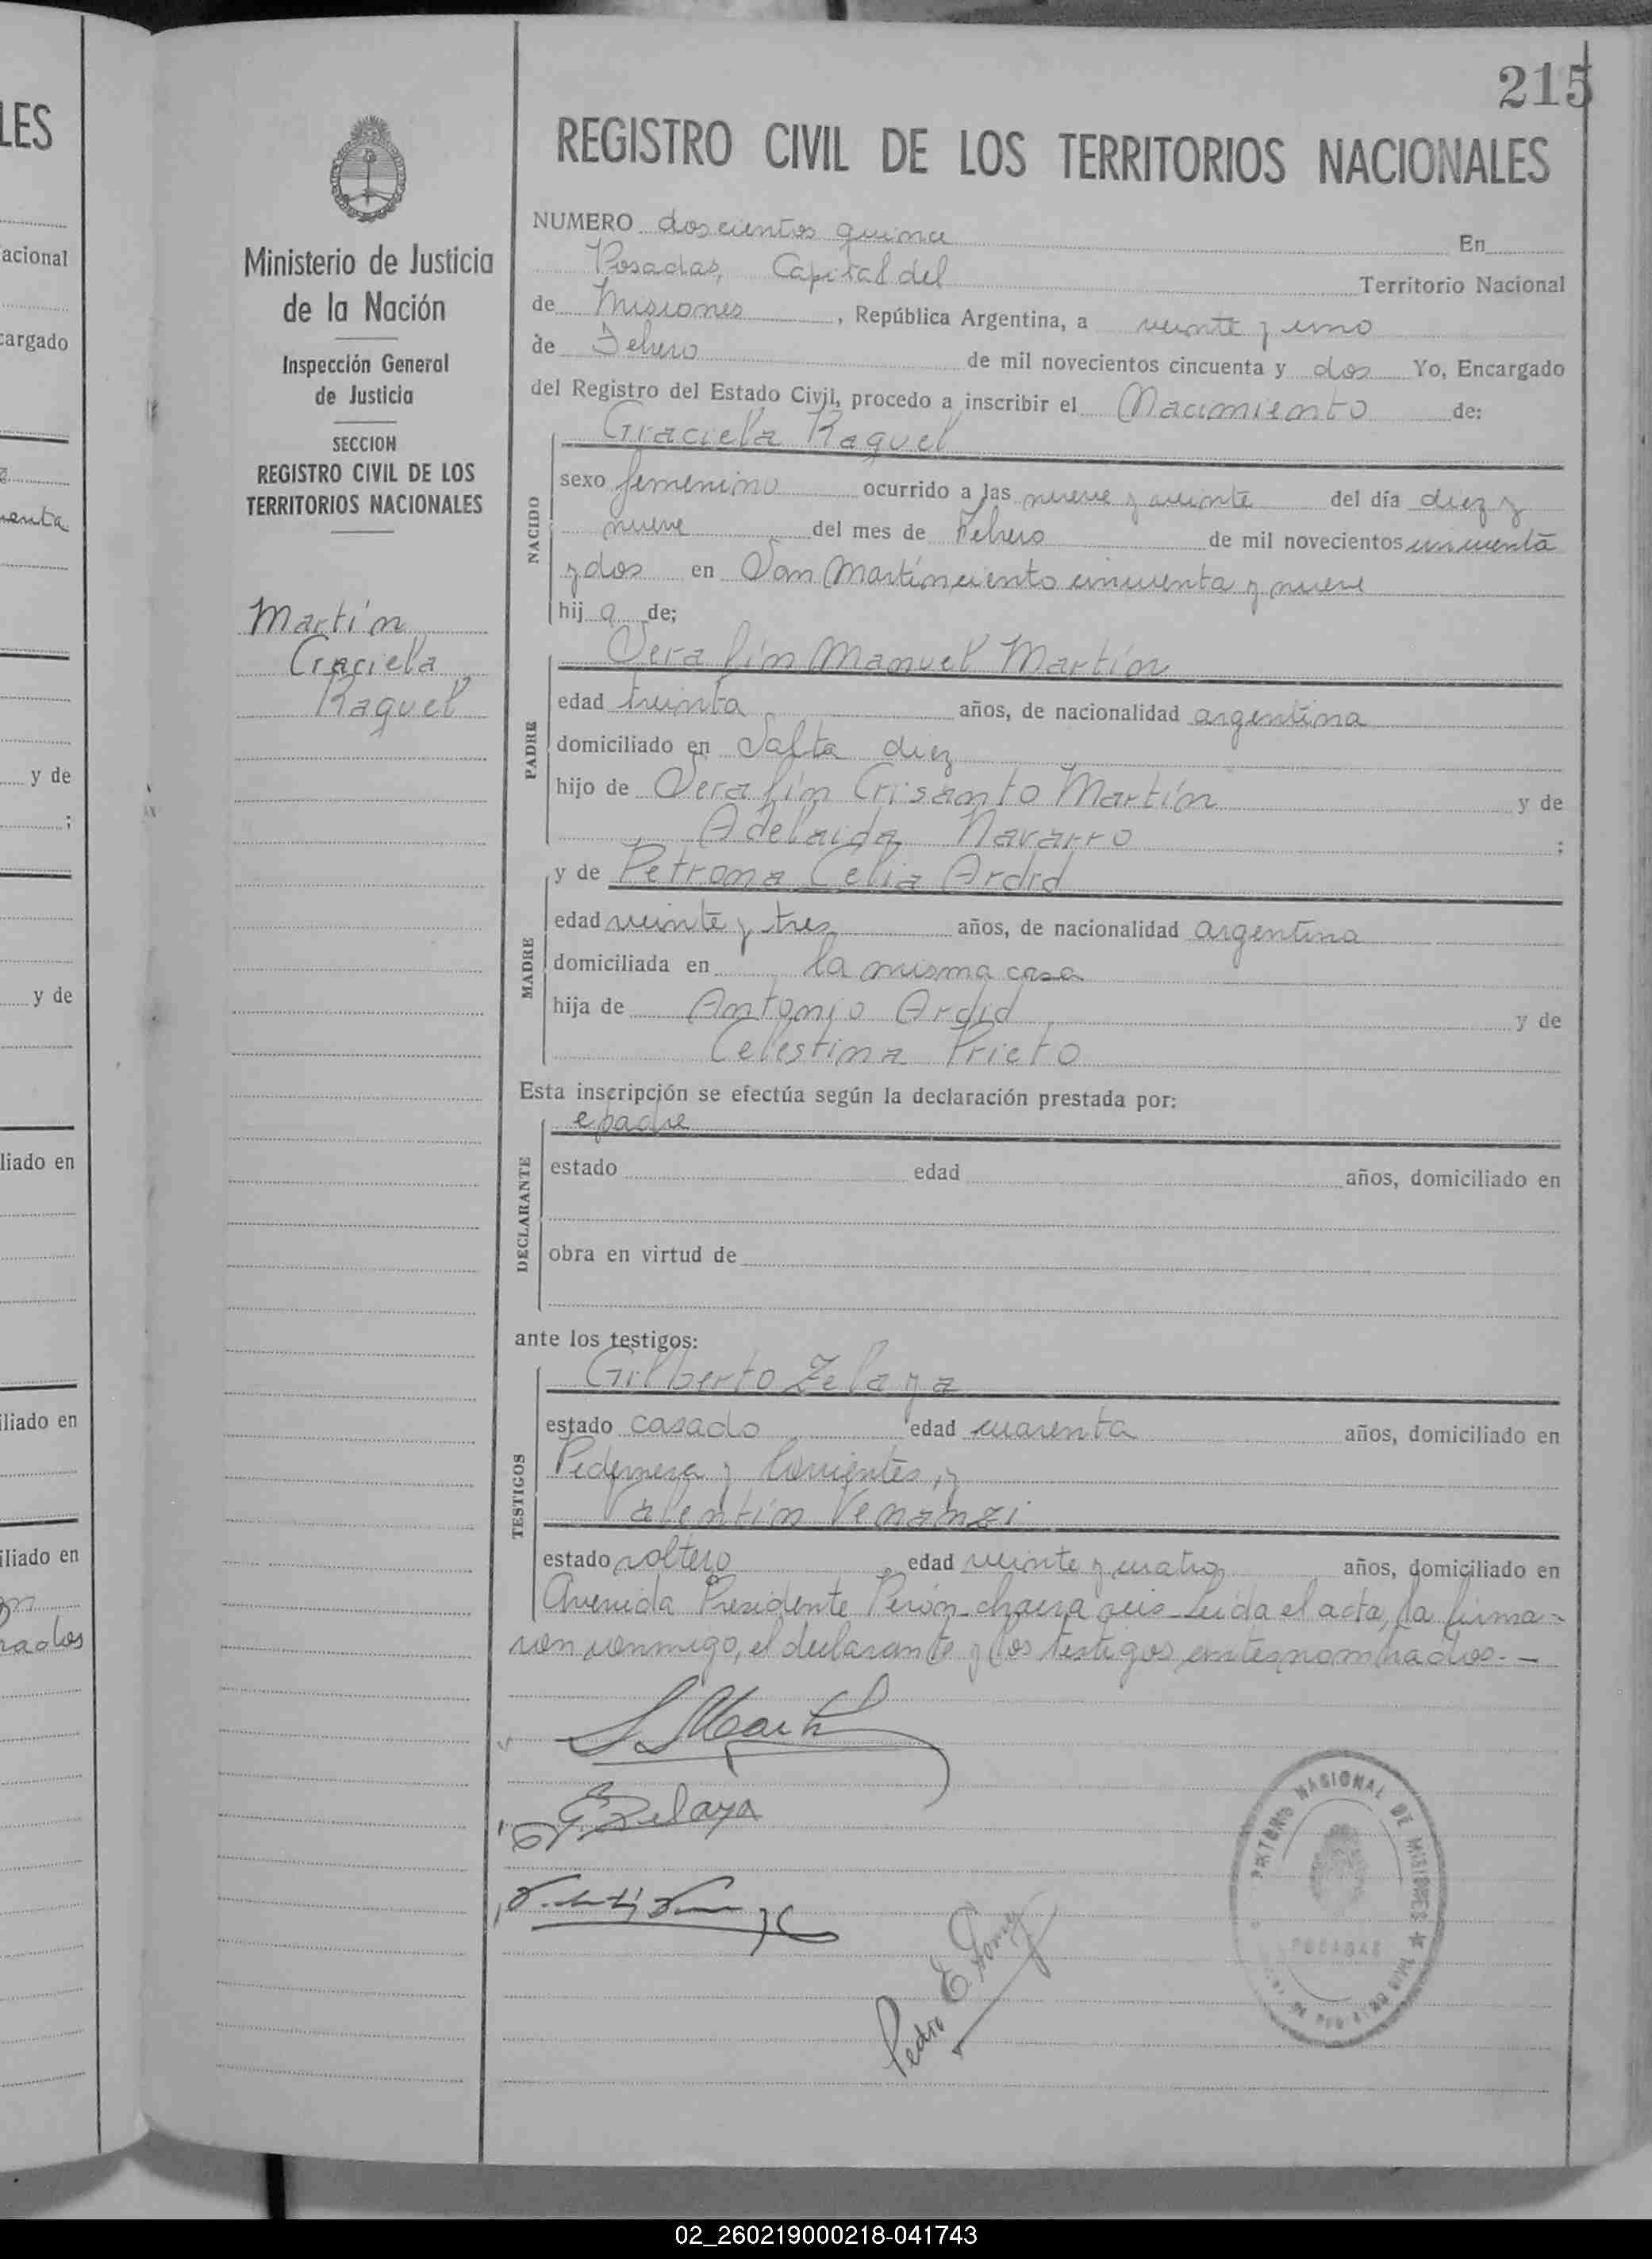 215
REGISTRO CIVIL DE LOS TERRITORIOS NACIONALES
Ministerio de Justicia
de la Nación
Inspección General
de Justicia
SECCION
REGISTRO CIVIL DE LOS
TERRITORIOS NACIONALES
Martín
Graciela
Raquel
NUMERO doscientos quince En
Posadas, Capital del Territorio Nacional
de Misiones, República Argentina, a veinte y uno
de Febrero de mil novecientos cincuenta y dos Yo, Encargado
del Registro del Estado Civil, procedo a inscribir el Nacimiento de:
Graciela Raquel
NACIDO
sexo femenino ocurrido a las nueve y veinte del día diez y
nueve del mes de Febrero de mil novecientos cincuenta
y dos en San Martín ciento cincuenta y nueve
hij a de;
Serafín Manuel Martín
PADRE
edad treinta años, de nacionalidad argentina
domiciliado en Salta diez
hijo de Serafín Crisanto Martín y de
Adelaida Navarro ;
y de Petrona Celia Ardid
MADRE
edad veinte y tres años, de nacionalidad argentina
domiciliada en la misma casa
hija de Antonio Ardid y de
Celestina Prieto
Esta inscripción se efectúa según la declaración prestada por:
DECLARANTE
e padre
estado edad años, domiciliado en
obra en virtud de
ante los testigos:
TESTIGOS
Gilberto Zelaya
estado casado edad cuarenta años, domiciliado en
Pedernera y Corrientes, y
Valentín Venanzi
estado soltero edad veinte y cuatro años, domiciliado en
Avenida Presidente Perón chacra seis Leída el acta, la firma=
ron conmigo, el declarante y los testigos antes nombrados.-
S Martín
G. Zelaya
Pedro E.
NACIONAL DE MISIONES
POSADAS
LES
acional
cargado
y de
;
y de
liado en
iliado en
iliado en
02_260219000218-041743